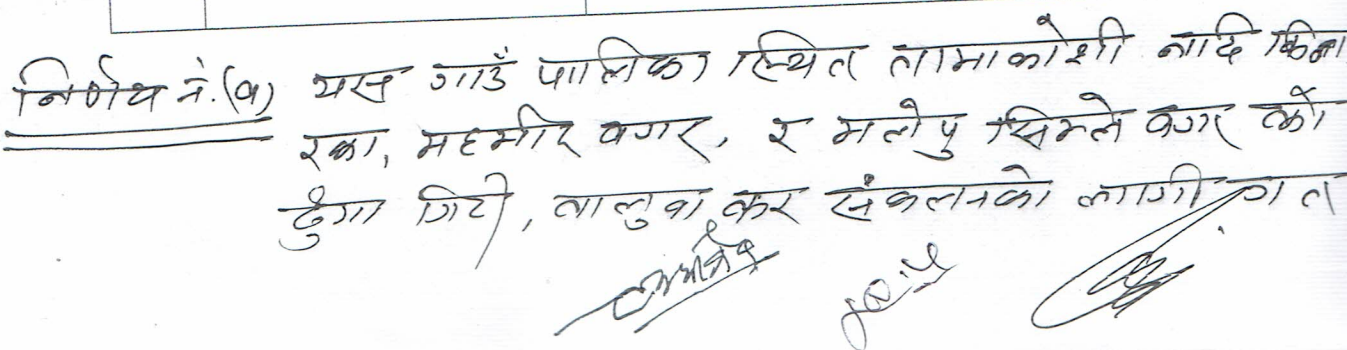 निर्णय नं.(१) यस गाउँ पालिका स्थित तामाकोशी नादि किना
रका, महभीर वगर, र मलेपु सिम्ले वगर को
ढुंगा गिटी, वालुवा कर संकलनको लागी गत